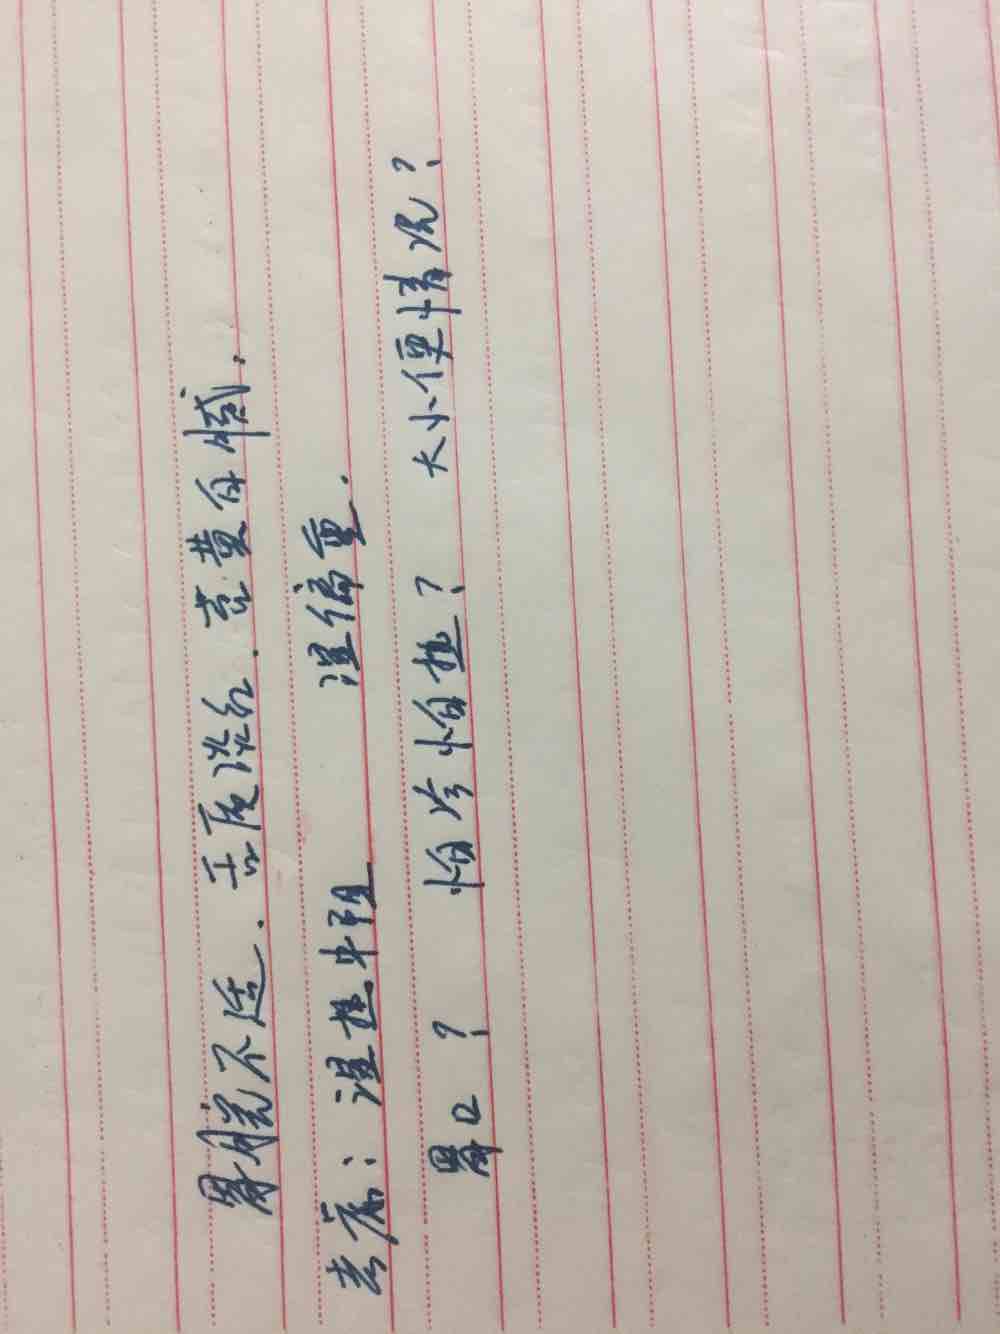 胃脘不适. 舌质淡红. 苔黄白腻.
考虑: 湿热中阻 湿偏重.
胃口? 怕冷怕热? 大小便情况?